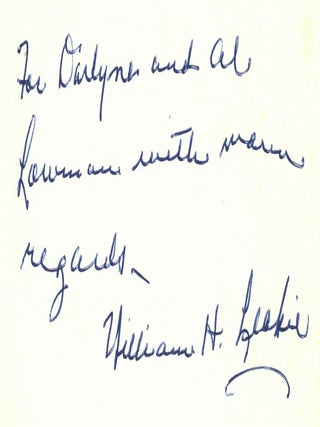 For Darlyne and Al
Lowman with warm
regards,
William H. Leckie